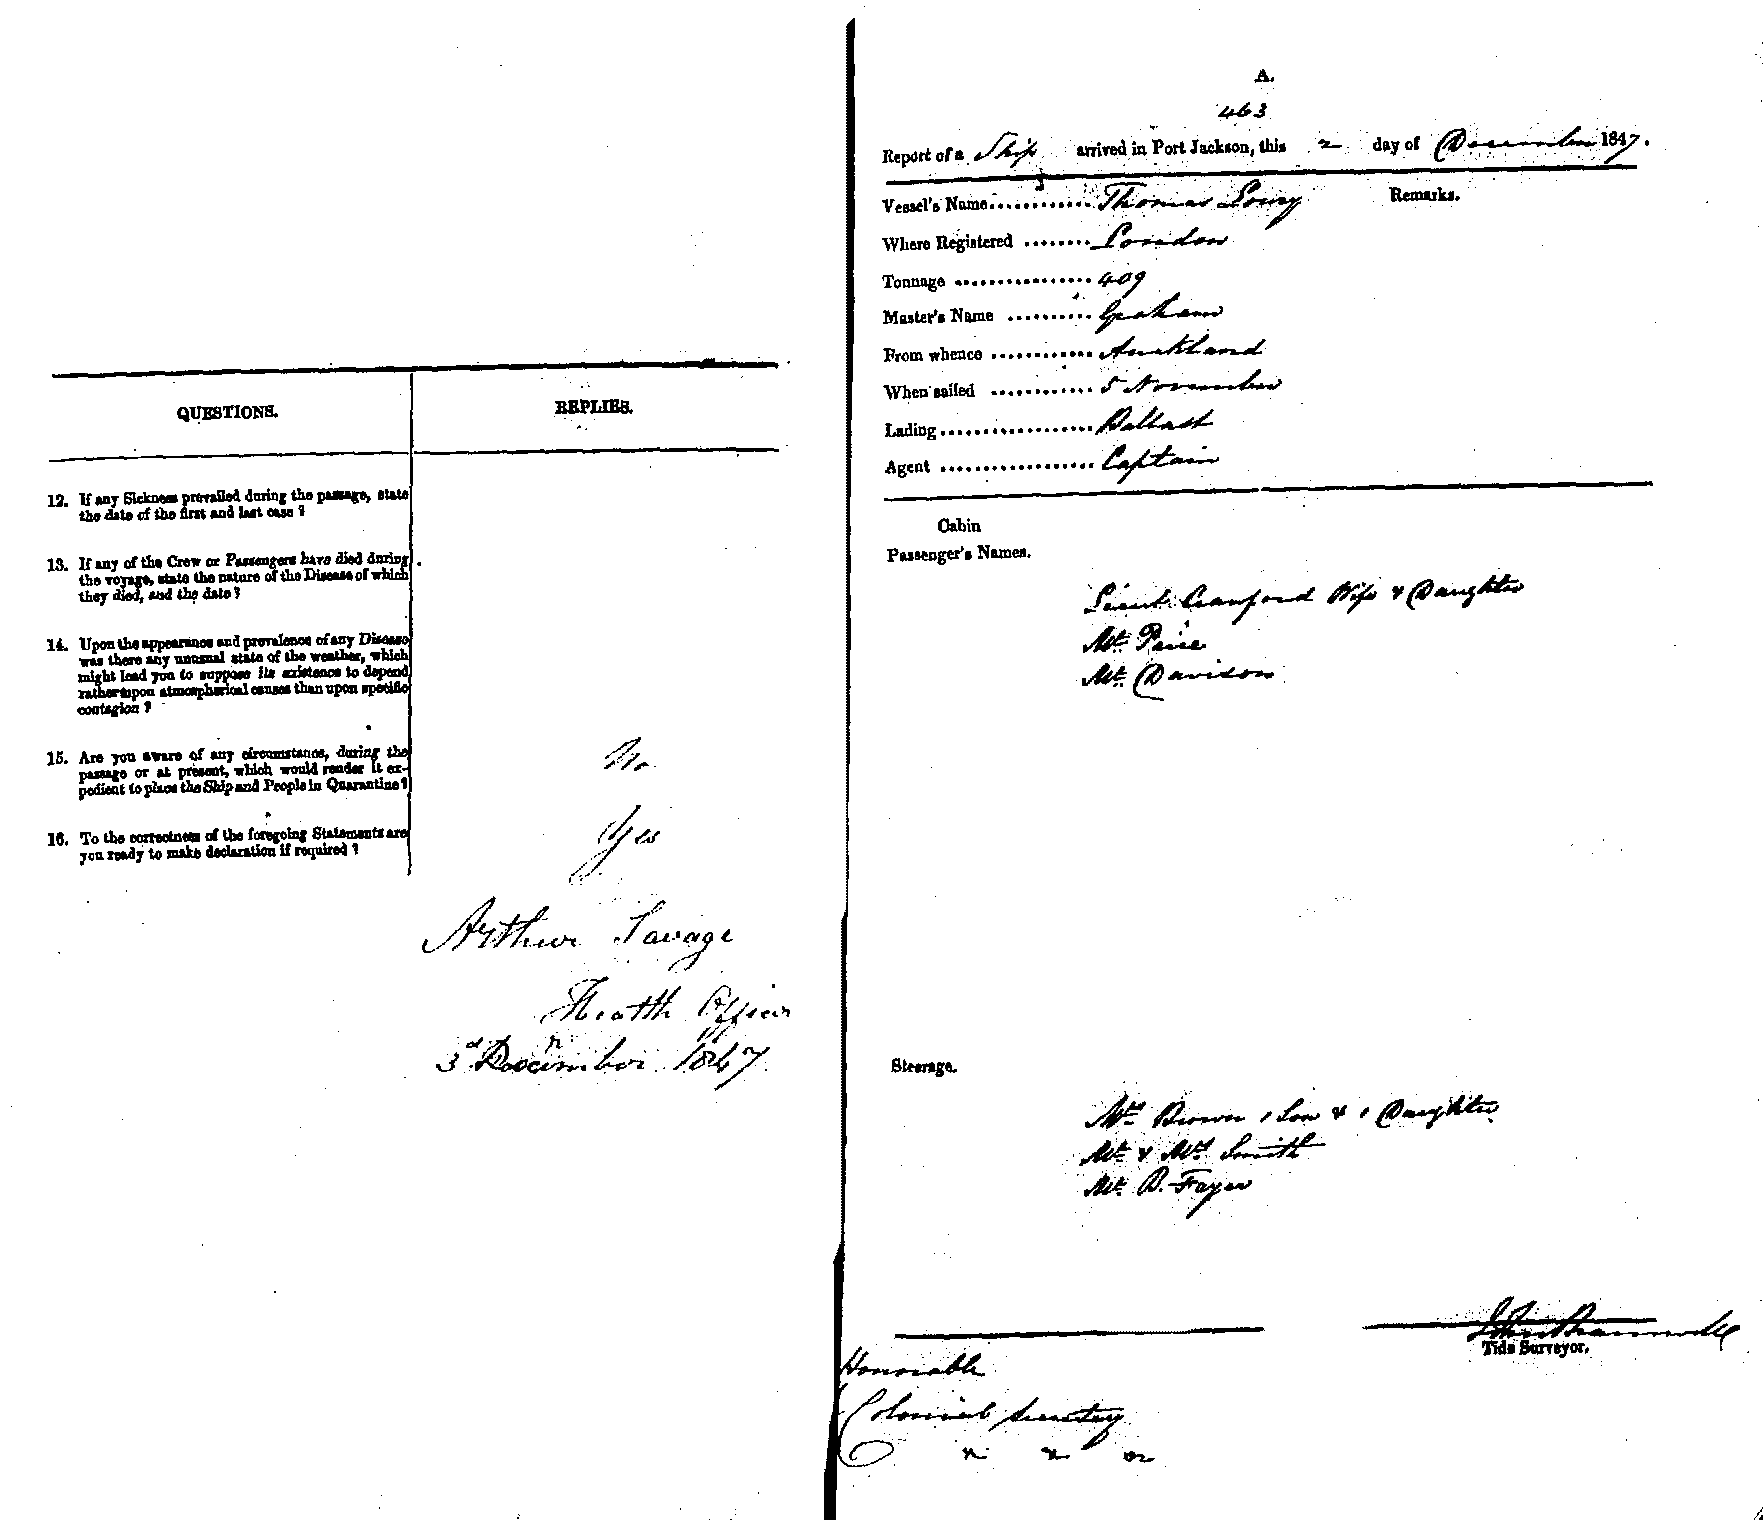 QUESTIONS.
REPLIES.
12. If any Sickness prevailed during the passage, state
the date of the first and last case ?
13. If any of the Crew or Passengers have died during
the voyage, state the nature of the Disease of which
they died, and the date ?
14. Upon the appearance and prevalence of any Disease
was there any unusual state of the weather, which
might lead you to suppose its existence to depend
rather upon atmospherical causes than upon specific
contagion ?
15. Are you aware of any circumstance, during the
passage or at present, which would render it ex-
pedient to place the Ship and People in Quarantine ?
No
16. To the correctness of the foregoing Statements are
you ready to make declaration if required ?
Yes
Arthur Savage
Health Officer
3d December 1847
A.
463
Report of a Ship arrived in Port Jackson, this 2 day of December 1847.
Vessel's Name............ Thomas Lowry
Remarks.
Where Registered ........ London
Tonnage ................ 409
Master's Name .......... Graham
From whence ............ Auckland
When sailed ............ 5 November
Lading.................. Ballast
Agent .................. Captain
Cabin
Passenger's Names.
Lieut. Crawford Wife & Daughter
Mr.
Mr. Davison
Steerage.
Mrs Brown 1 Son & 1 Daughter
Mr. & Mrs Smith
Mr. D. Fayer
John
Tide Surveyor.
Honorable
Colonial Secretary